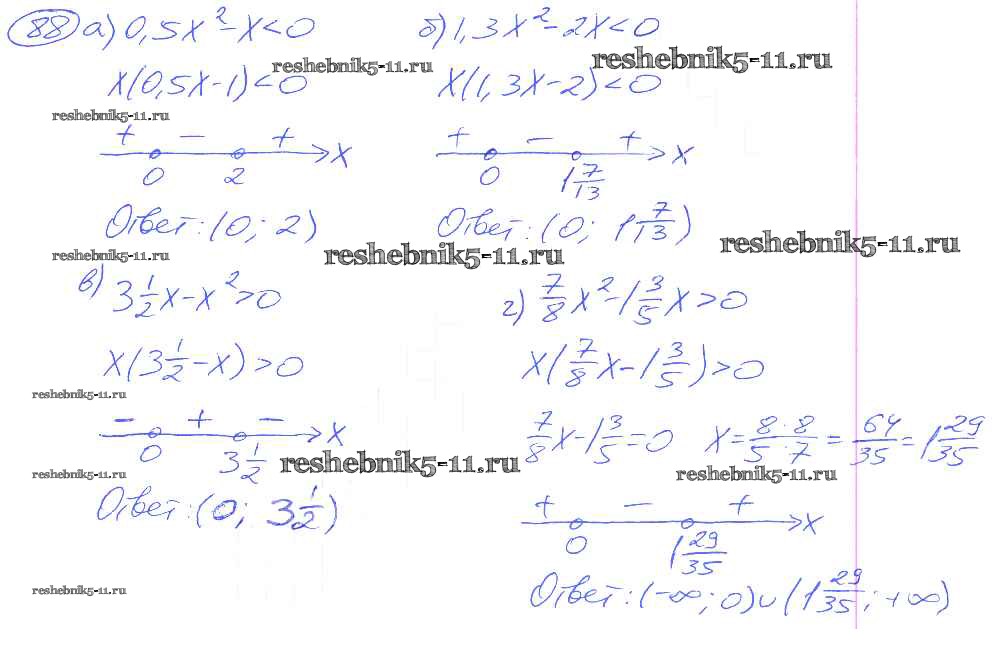 88 а) 0,5x² - x < 0
x(0,5x - 1) < 0
+ - + x
0 2
Ответ: (0; 2)
б) 1,3x² - 2x < 0
x(1,3x - 2) < 0
+ - + x
0 1 7/13
Ответ: (0; 1 7/13)
в) 3 1/2 x - x² > 0
x(3 1/2 - x) > 0
- + - x
0 3 1/2
Ответ: (0; 3 1/2)
г) 7/8 x² - 1 3/5 x > 0
x(7/8 x - 1 3/5) > 0
7/8 x - 1 3/5 = 0 x = 8·8/5·7 = 64/35 = 1 29/35
+ - + x
0 1 29/35
Ответ: (-∞; 0)∪(1 29/35; +∞)
reshebnik5-11.ru
reshebnik5-11.ru
reshebnik5-11.ru
reshebnik5-11.ru
reshebnik5-11.ru
reshebnik5-11.ru
reshebnik5-11.ru
reshebnik5-11.ru
reshebnik5-11.ru
reshebnik5-11.ru
reshebnik5-11.ru